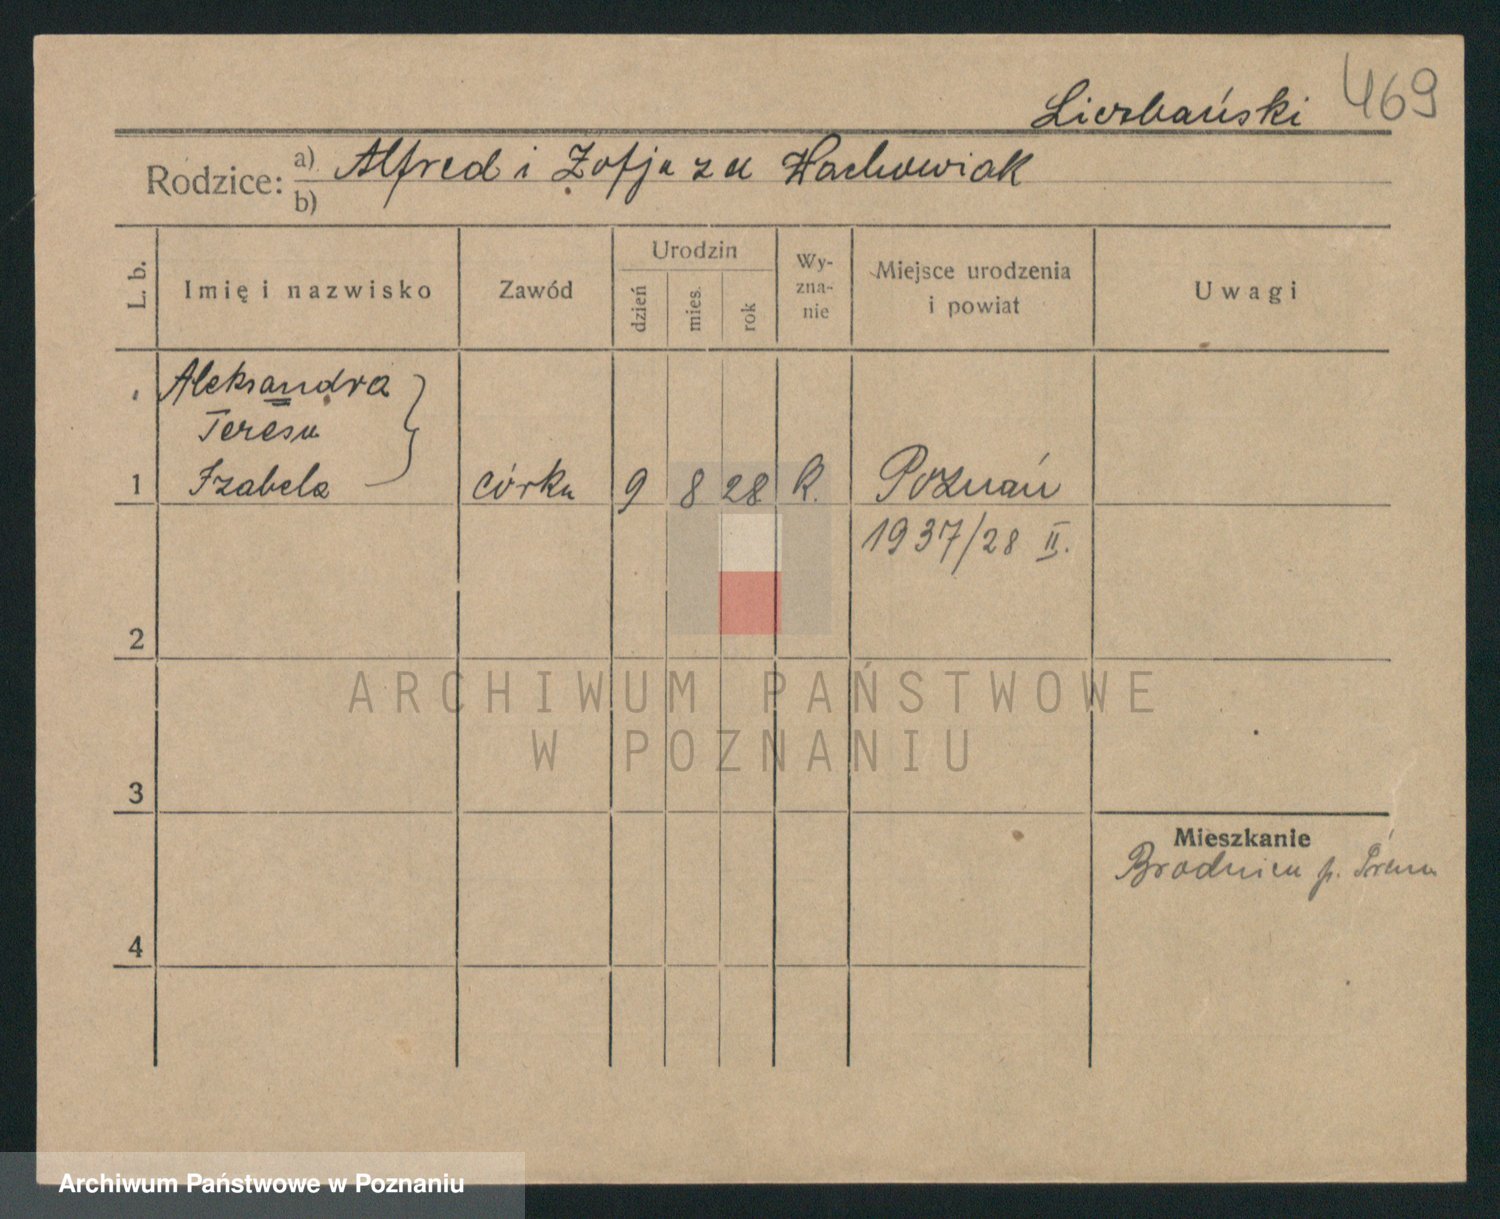 469
Liczbański
Rodzice: a) Alfred i Zofja z d Wachowiak
b)
L. b.
Imię i nazwisko
Zawód
Urodzin
dzień
mies.
rok
Wy-
zna-
nie
Miejsce urodzenia
i powiat
Uwagi
Aleksandra
Teresa
1 Izabela córka 9 8 28 R. Poznań
1937/28 II.
2
ARCHIWUM PAŃSTWOWE
W POZNANIU
3
Mieszkanie
Brodnica p. Śrem
4
Archiwum Państwowe w Poznaniu